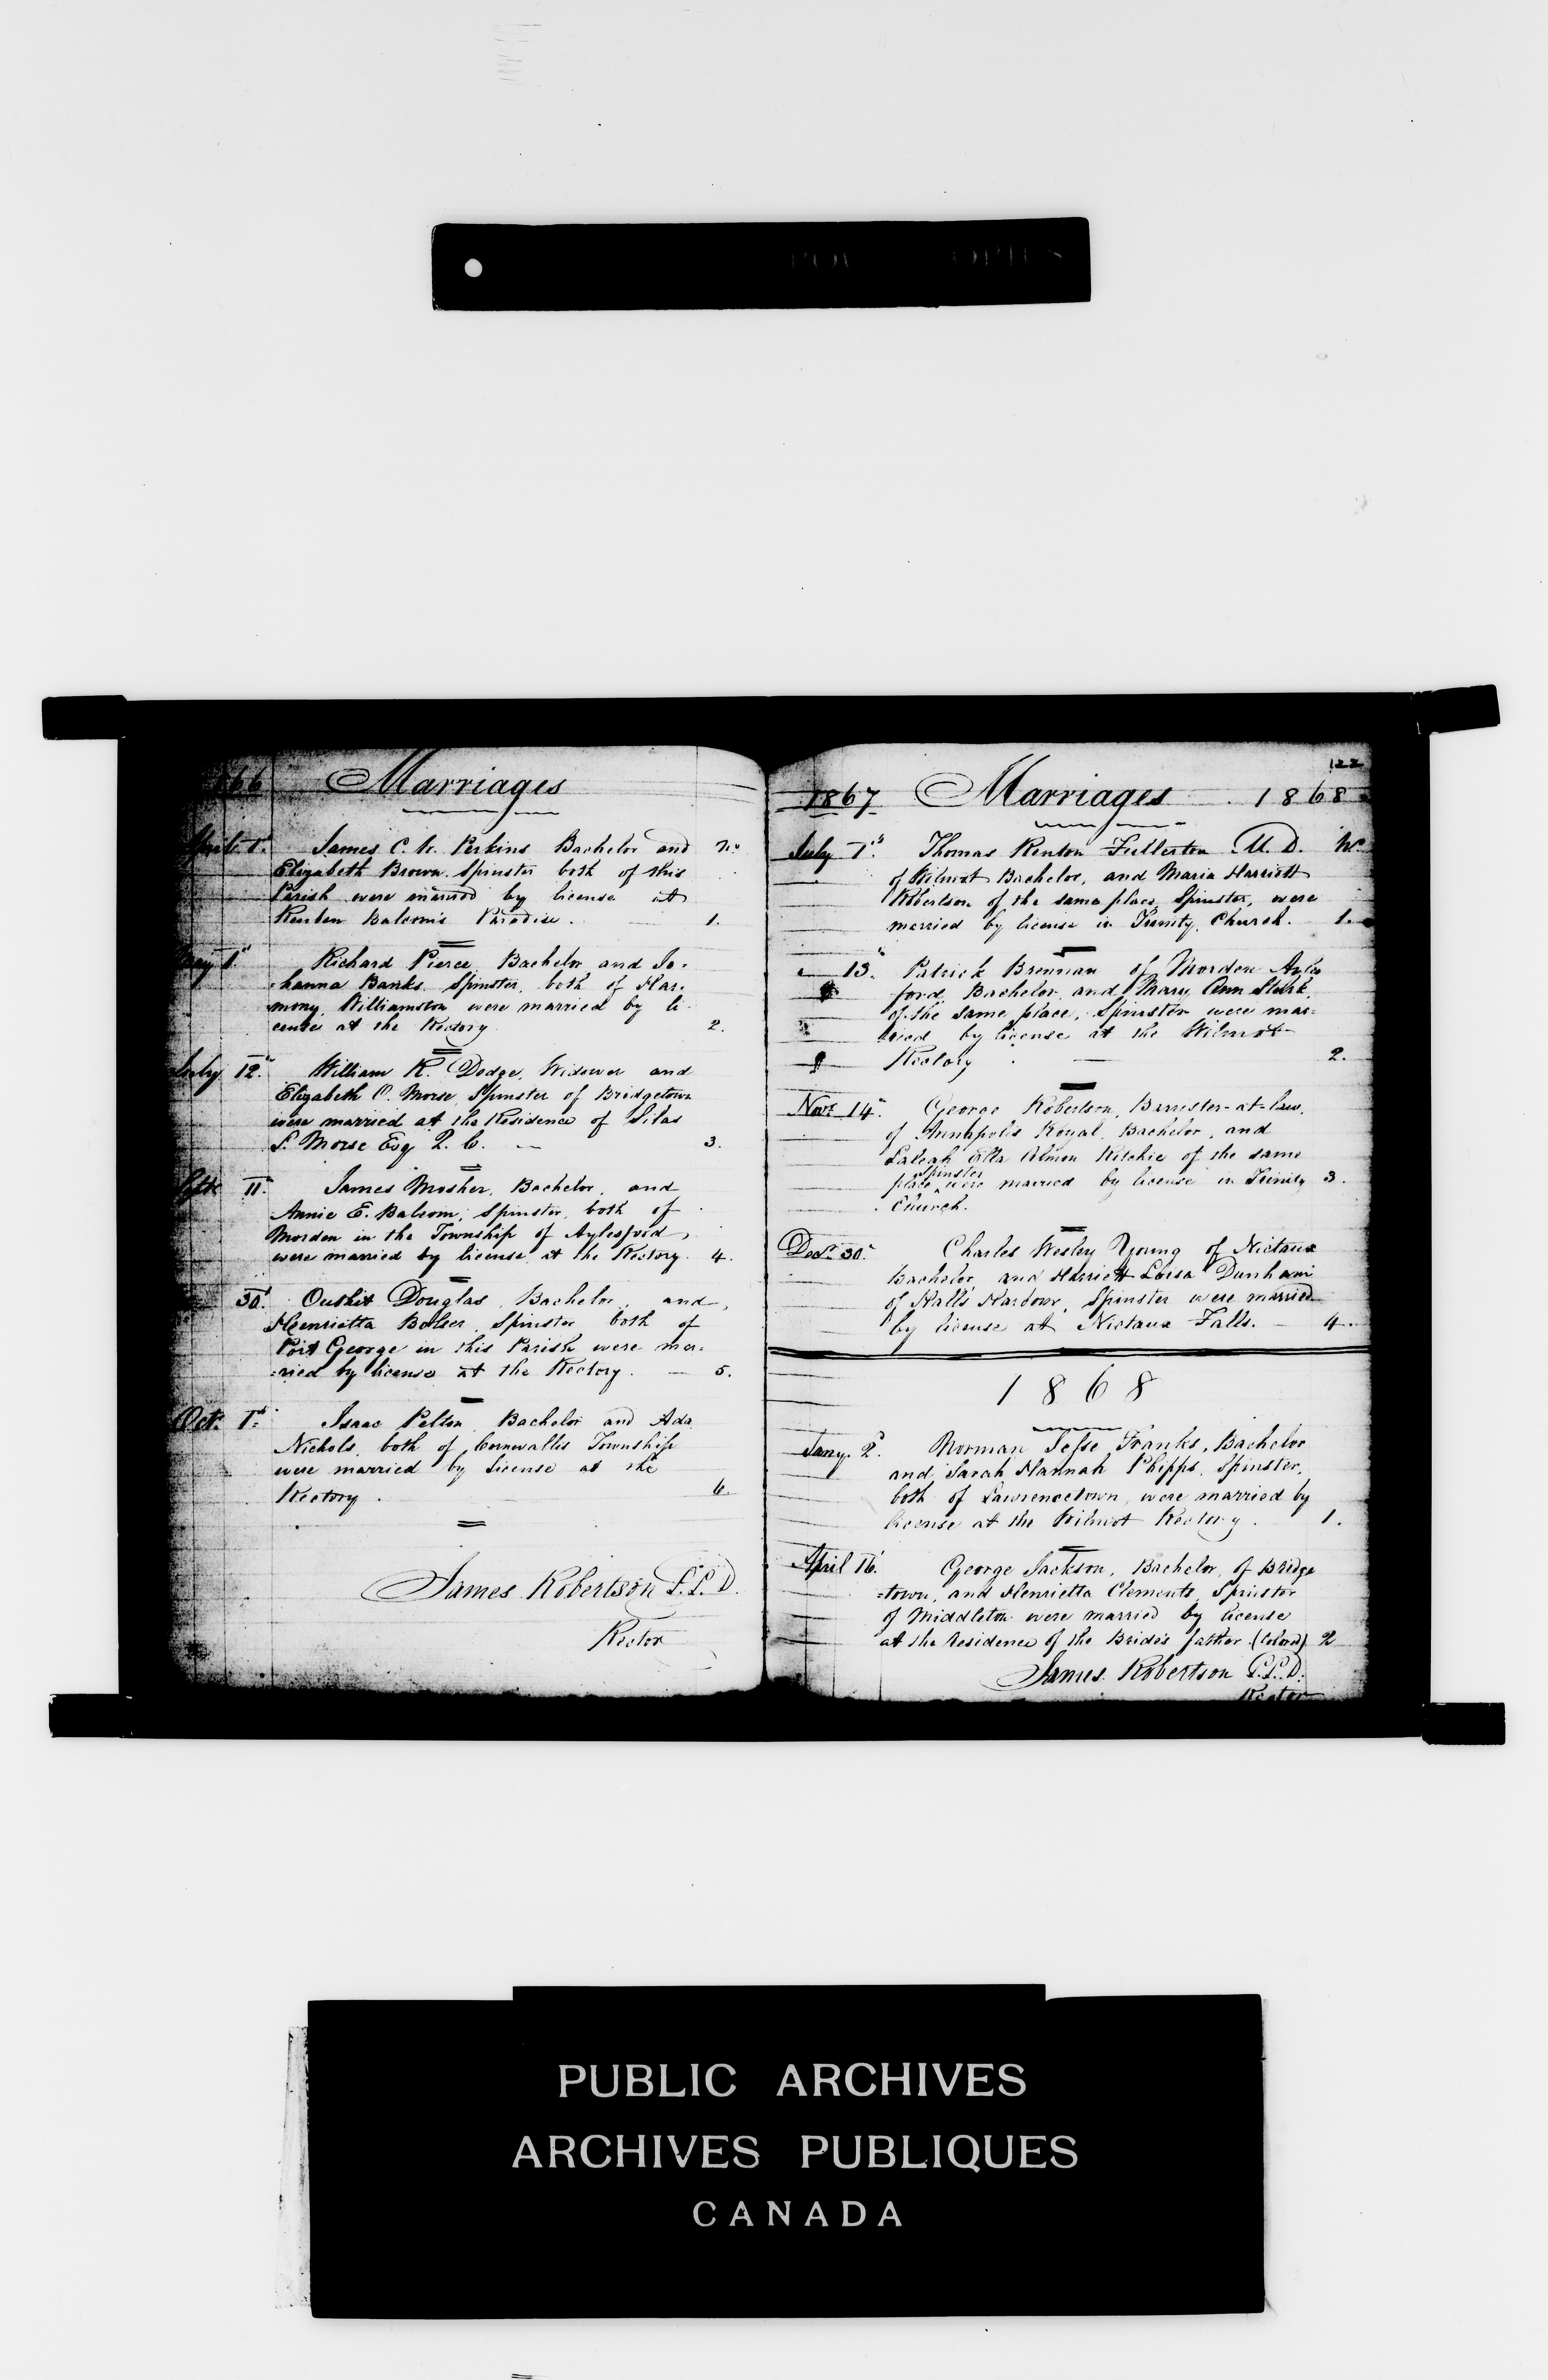 1866 Marriages
April 1st. James C. W. Perkins Bachelor and No
Elizabeth Brown Spinster both of this
Parish were married by license at
Reuben Balcom's Paradise. 1.
May 1st Richard Pierce Bachelor and Jo-
-hanna Banks Spinster, both of Har-
mony Williamston were married by li-
cense at the Rectory 2.
July 12th. William K. Dodge, Widower and
Elizabeth O. Morse, Spinster of Bridgetown
were married at the Residence of Silas
S. Morse Esq Q. C. 3.
Septr 11th James Mosher, Bachelor, and
Annie E. Balcom, Spinster, both of
Morden in the Township of Aylesford,
were married by license at the Rectory. 4.
30. Outhit Douglas, Bachelor, and
Henrietta Bolser, Spinster both of
Port George in this Parish were mar-
-ried by license at the Rectory. 5.
Oct. 1st Isaac Pelton, Bachelor and Ada
Nichols, both of Cornwallis Township
were married by license at the
Rectory. 6.
James Robertson L.L.D.
Rector
122
1867 Marriages 1868
July 1st. Thomas Renton Fullerton M.D. No.
of Wilmot Bachelor, and Maria Harriett
Robertson of the same place, Spinster, were
married by license in Trinity Church. 1.
" 13th. Patrick Brennan of Morden Ayles
ford, Bachelor and Mary Ann Stark,
of the same place, Spinster were mar-
ried by license at the Wilmot
Rectory. 2.
Novr 14th. George Robertson, Barrister-at-law,
of Annapolis Royal, Bachelor, and
Laleah Etta Almon Ritchie of the same
place ^Spinster were married by license in Trinity 3.
Church.
Decr. 30th. Charles Wesley Young of Nictaux
Bachelor and Harriett Louisa Dunham
of Hall's Harbour, Spinster were married
by license at Nictaux Falls. 4.
1868
Jany. 2d. Norman Jesse Franks, Bachelor
and Sarah Hannah Phipps, Spinster,
both of Lawrencetown, were married by
license at the Wilmot Rectory. 1.
April 16. George Jackson, Bachelor, of Bridge
-town, and Henrietta Clements, Spinster
of Middleton were married by license
at the residence of the Bride's father. (Colored) 2
James Robertson L.L.D.
Rector
PUBLIC ARCHIVES
ARCHIVES PUBLIQUES
CANADA